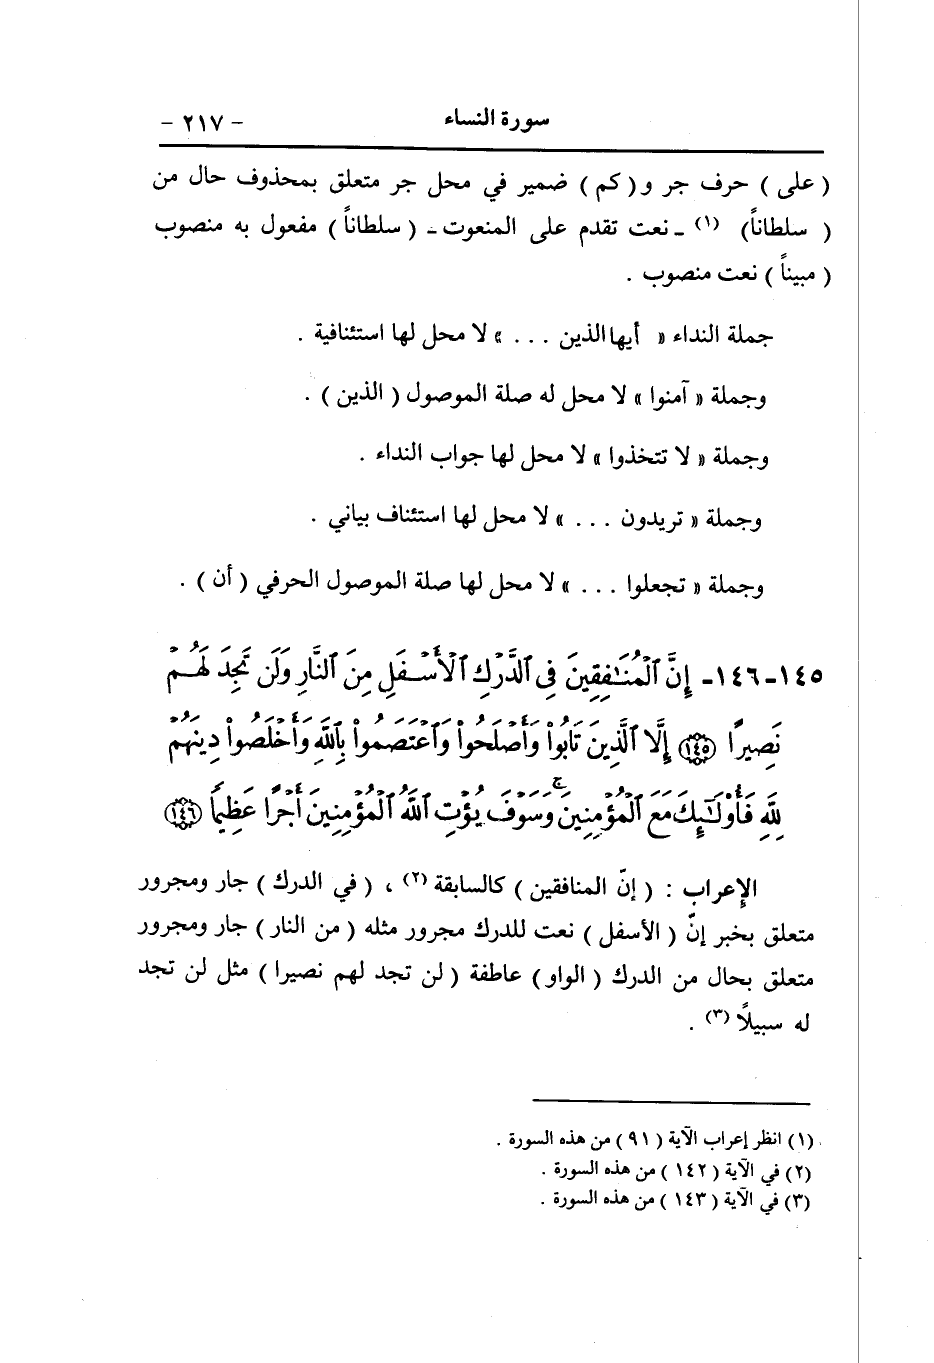 سورة النساء - ٢١٧ -
( على ) حرف جر و( كم ) ضمير في محل جر متعلق بمحذوف حال من
( سلطاناً ) (١) ـ نعت تقدم على المنعوت ـ ( سلطاناً ) مفعول به منصوب
( مبيناً ) نعت منصوب .
جملة النداء « أيها الذين . . . » لا محل لها استئنافية .
وجملة « آمنوا » لا محل له صلة الموصول ( الذين ) .
وجملة « لا تتخذوا » لا محل لها جواب النداء .
وجملة « تريدون . . . » لا محل لها استئناف بياني .
وجملة « تجعلوا . . . » لا محل لها صلة الموصول الحرفي ( أن ) .
١٤٥-١٤٦- إِنَّ ٱلْمُنَٰفِقِينَ فِى ٱلدَّرْكِ ٱلْأَسْفَلِ مِنَ ٱلنَّارِ وَلَن تَجِدَ لَهُمْ
نَصِيرًا ﴿١٤٥﴾ إِلَّا ٱلَّذِينَ تَابُوا۟ وَأَصْلَحُوا۟ وَٱعْتَصَمُوا۟ بِٱللَّهِ وَأَخْلَصُوا۟ دِينَهُمْ
لِلَّهِ فَأُو۟لَٰٓئِكَ مَعَ ٱلْمُؤْمِنِينَ ۚ وَسَوْفَ يُؤْتِ ٱللَّهُ ٱلْمُؤْمِنِينَ أَجْرًا عَظِيمًا ﴿١٤٦﴾
الإعراب : ( إنّ المنافقين ) كالسابقة (٢) ، ( في الدرك ) جار ومجرور
متعلق بخبر إنّ ( الأسفل ) نعت للدرك مجرور مثله ( من النار ) جار ومجرور
متعلق بحال من الدرك ( الواو ) عاطفة ( لن تجد لهم نصيرا ) مثل لن تجد
له سبيلاً (٣) .
(١) انظر إعراب الآية ( ٩١ ) من هذه السورة .
(٢) في الآية ( ١٤٢ ) من هذه السورة .
(٣) في الآية ( ١٤٣ ) من هذه السورة .